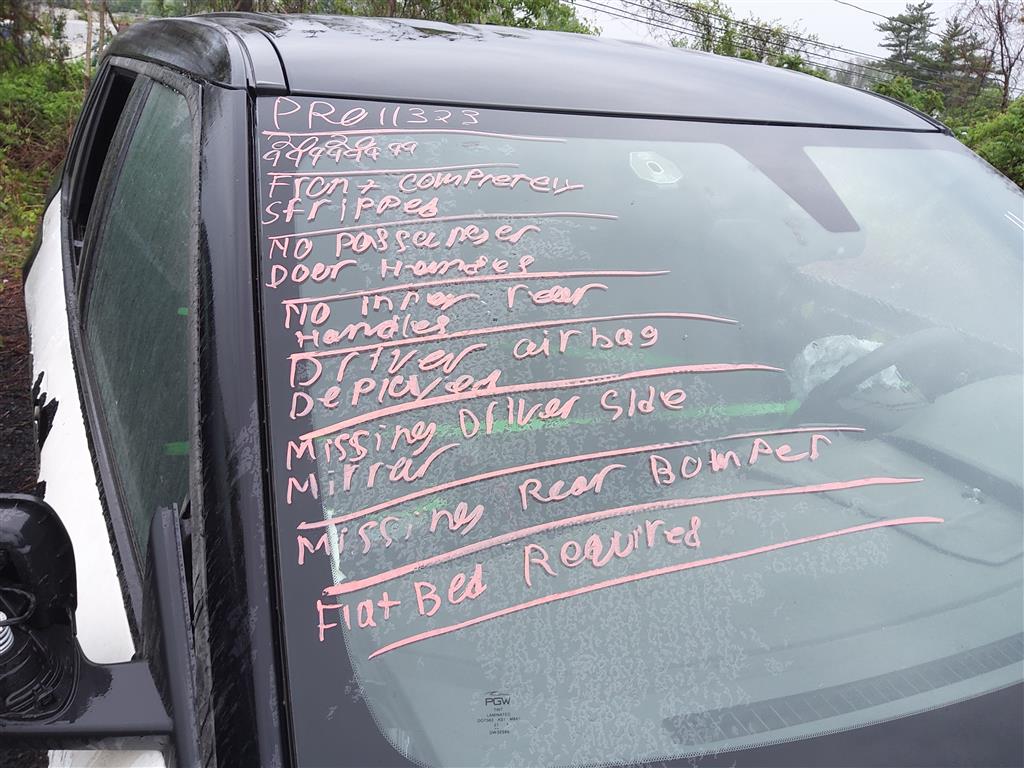 PRO11323
Front completely
Stripped
NO Passenger
Door Handles
NO inner rear
Handles
Driver airbag
Deployed
Missing Driver Side
Mirrar
Missing Rear Bomper
Flat Bed Required
PGW
LAMINATED